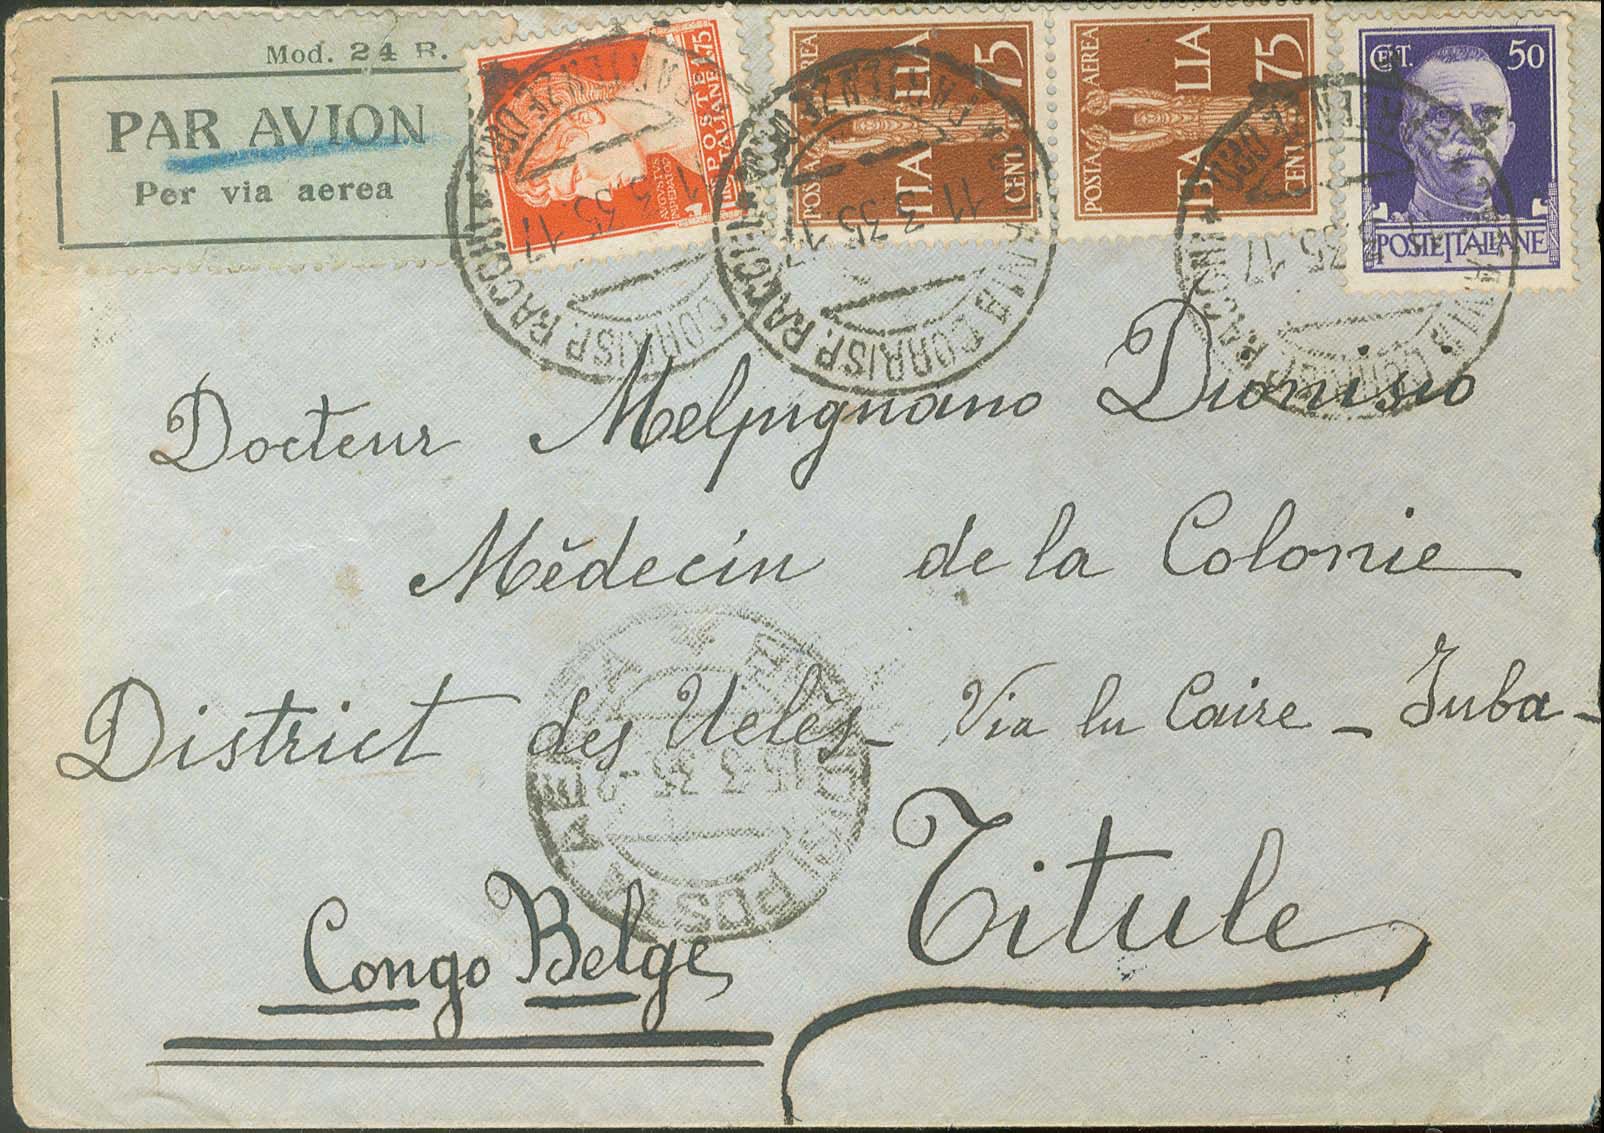 Mod. 24 R.
PAR AVION
Per via aerea
POSTE ITALIANE 1,75
POSTA AEREA
ITALIA
CENT. 75
POSTA AEREA
ITALIA
CENT. 75
CENT. 50
POSTE ITALIANE
CORRISP. RACCOM
11.3.35.17
CORRISP. RACCOM
11.3.35.17
Docteur Melpignano Dionisio
Médecin de la Colonie
District des Uelès - Via lu Caire - Juba -
Titule
Congo Belge
POSTA AEREA
15-3-35-